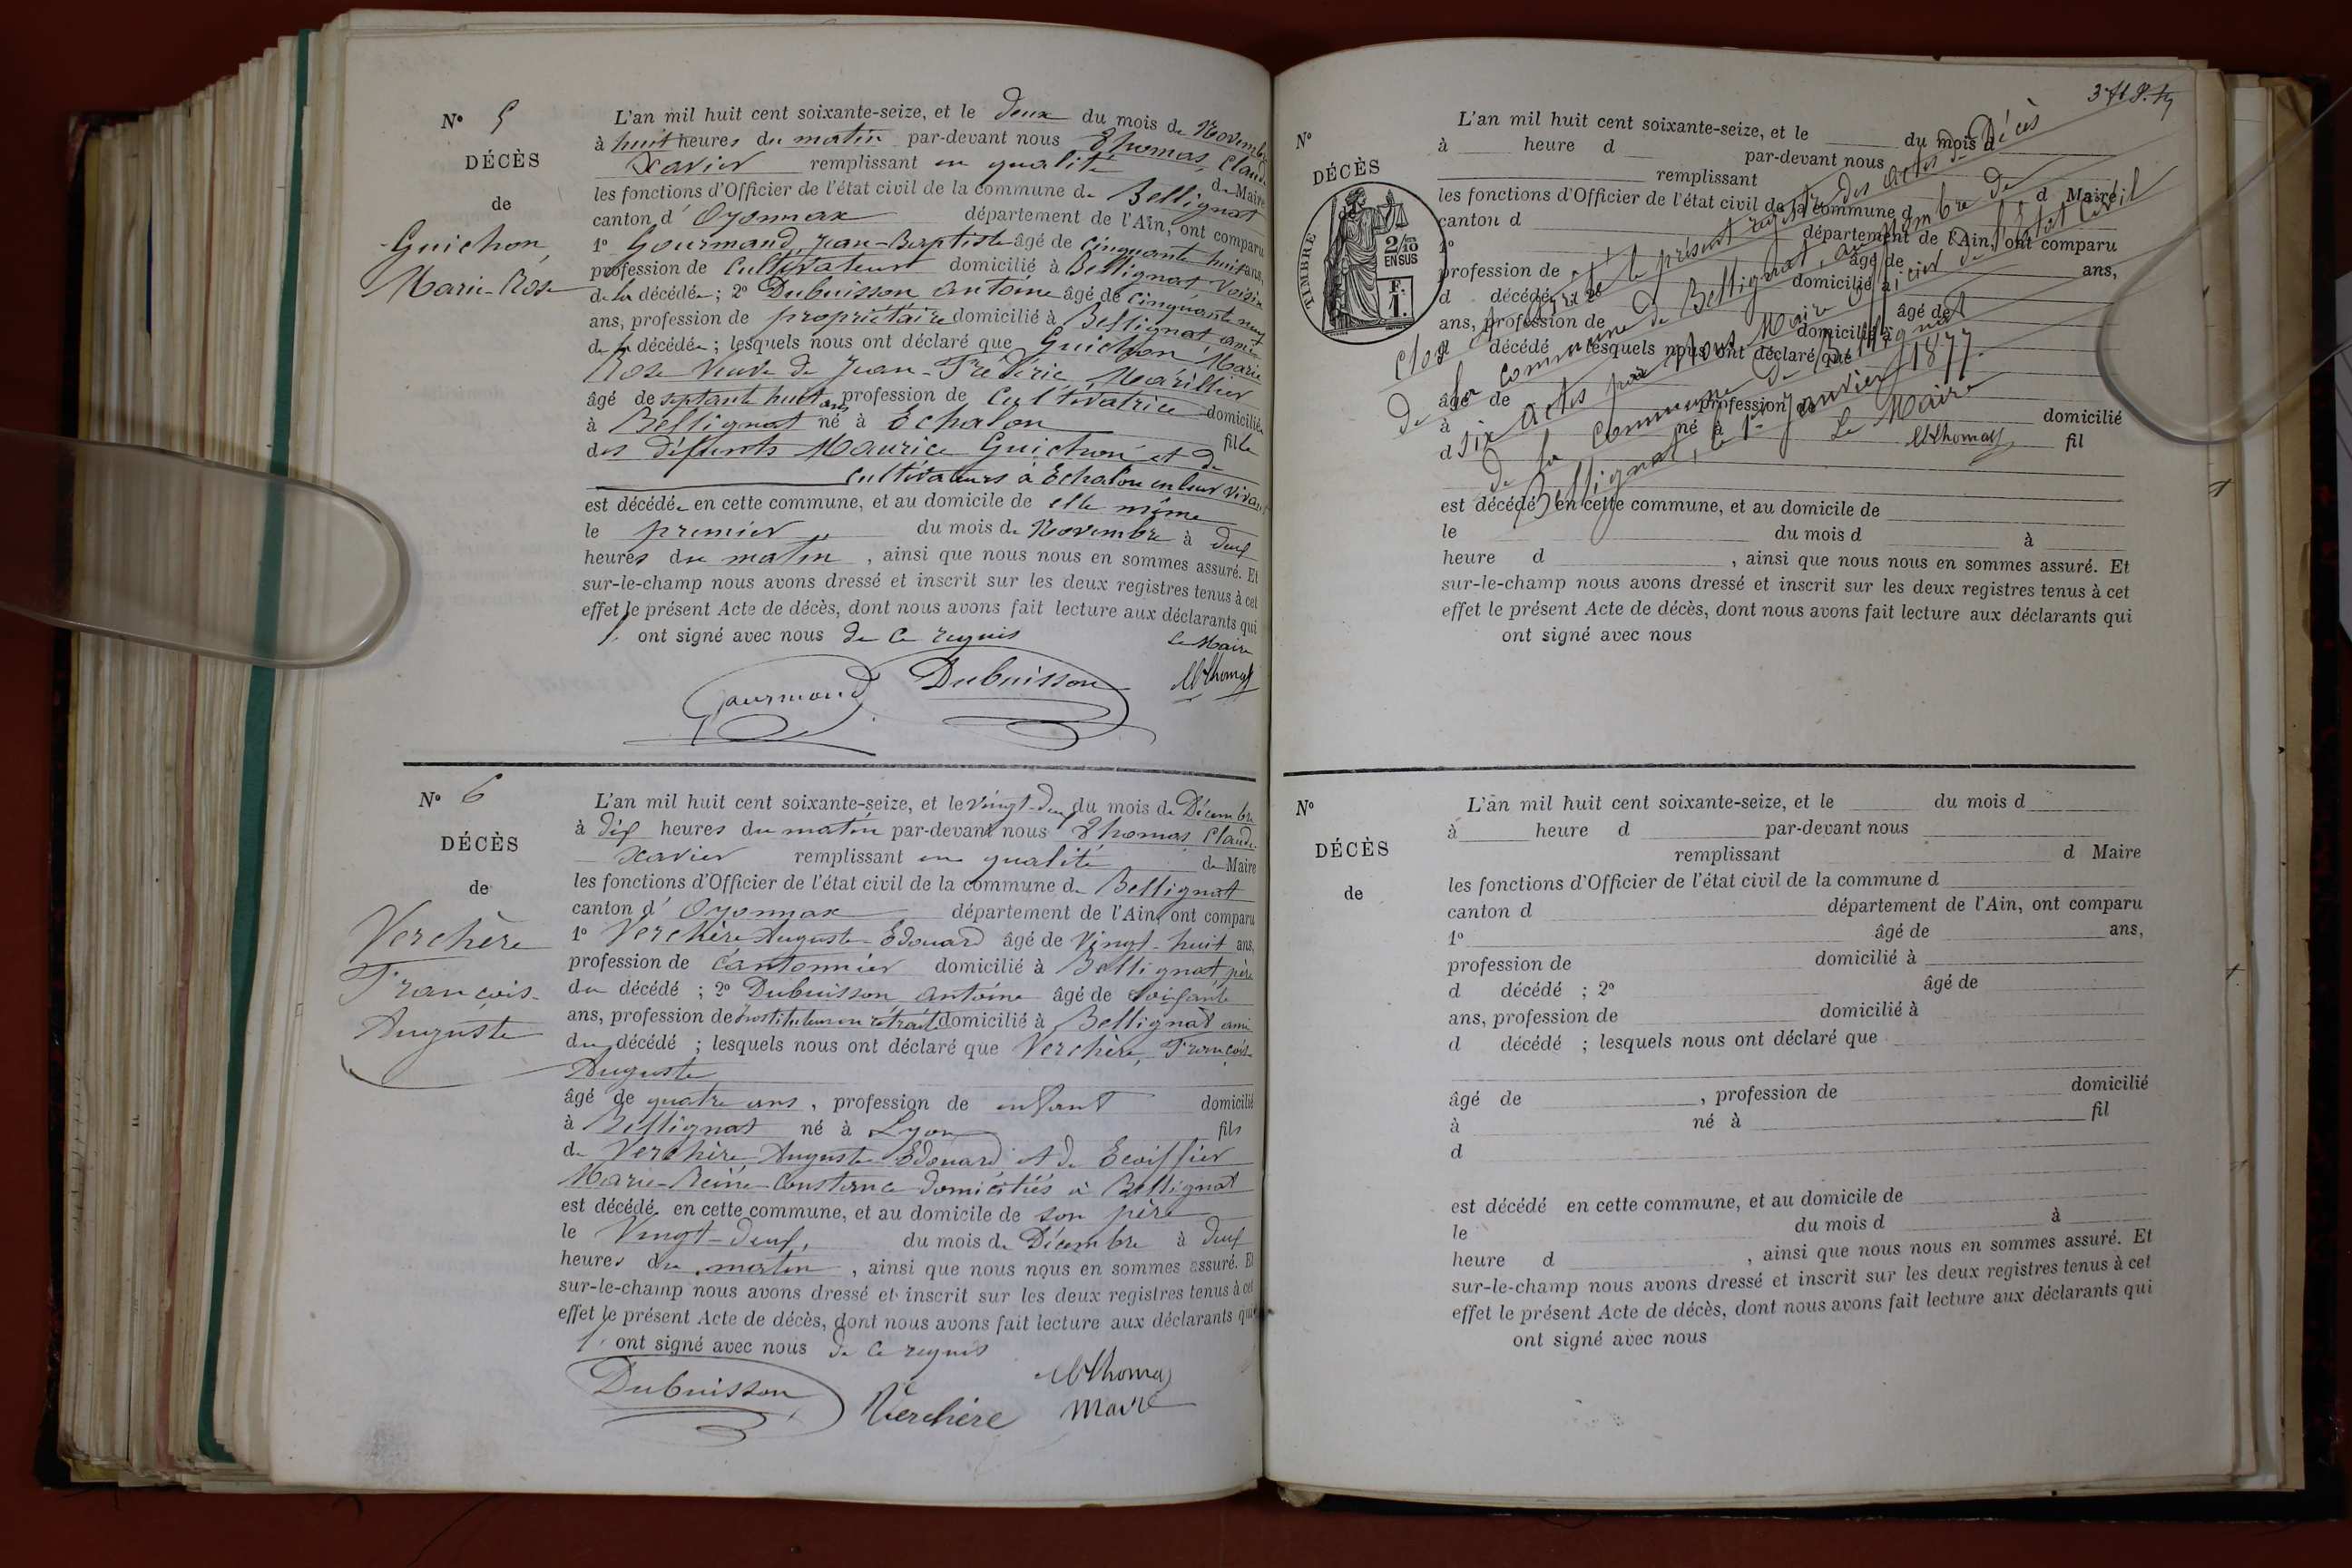 N° 5
DÉCÈS
de
Guichon,
Marie-Rose
L'an mil huit cent soixante-seize, et le deux du mois de Novembre
à huit heures du matin par-devant nous Thomas, Claude
Xavier remplissant en qualité de Maire
les fonctions d'Officier de l'état civil de la commune de Bellignat
canton d'Oyonnax département de l'Ain, ont comparu
1° Gourmand, Jean-Baptiste âgé de cinquante huit ans,
profession de Cultivateur domicilié à Bellignat, voisin
de la décédée ; 2° Dubuisson Antoine âgé de cinquante neuf
ans, profession de propriétaire domicilié à Bellignat, ami
de la décédée ; lesquels nous ont déclaré que Guichon, Marie
Rose Veuve de Jean-Frédéric Marillier
âgé de septante huit ans, profession de Cultivatrice domiciliée
à Bellignat né à Echalon fille
des défunts Maurice Guichon et de
cultivateurs à Echalon en leur vivant
est décédée en cette commune, et au domicile de elle même
le premier du mois de Novembre à deux
heures du matin, ainsi que nous nous en sommes assuré. Et
sur-le-champ nous avons dressé et inscrit sur les deux registres tenus à cet
effet le présent Acte de décès, dont nous avons fait lecture aux déclarants qui
ont signé avec nous de ce requis
Le Maire
Gourmand Dubuisson Thomas
N° 6
DÉCÈS
de
Verchère
François-
Auguste
L'an mil huit cent soixante-seize, et le vingt-deux du mois de Décembre
à dix heures du matin par-devant nous Thomas, Claude
Xavier remplissant en qualité de Maire
les fonctions d'Officier de l'état civil de la commune de Bellignat
canton d'Oyonnax département de l'Ain, ont comparu
1° Verchère Auguste-Edouard âgé de vingt-huit ans,
profession de cantonnier domicilié à Bellignat, père
du décédé ; 2° Dubuisson Antoine âgé de soixante
ans, profession de Instituteur en retraite domicilié à Bellignat ami
du décédé ; lesquels nous ont déclaré que Verchère, François-
Auguste
âgé de quatre ans, profession de enfant domicilié
à Bellignat né à Lyon fils
de Verchère, Auguste Edouard et de Ecoiffier
Marie-Reine-Constance domiciliés à Bellignat
est décédé en cette commune, et au domicile de son père
le Vingt-deux, du mois de Décembre à deux
heures du matin, ainsi que nous nous en sommes assuré. Et
sur-le-champ nous avons dressé et inscrit sur les deux registres tenus à cet
effet le présent Acte de décès, dont nous avons fait lecture aux déclarants qui
ont signé avec nous de ce requis
Dubuisson Verchère Thomas
maire
N°
DÉCÈS
TIMBRE
2/10 EN SUS
F. 1.
L'an mil huit cent soixante-seize, et le du mois d
à heure d par-devant nous
remplissant d Maire
les fonctions d'Officier de l'état civil de la commune d
canton d département de l'Ain, ont comparu
1° âgé de ans,
profession de domicilié à
d décédé ; 2° âgé de
ans, profession de domicilié à
d décédé lesquels nous ont déclaré que
âgé de profession domicilié
à né à fil
d
est décédé en cette commune, et au domicile de
le du mois d à
heure d , ainsi que nous nous en sommes assuré. Et
sur-le-champ nous avons dressé et inscrit sur les deux registres tenus à cet
effet le présent Acte de décès, dont nous avons fait lecture aux déclarants qui
ont signé avec nous
Clos et arrêté le présent registre des actes de Décès
de la commune de Bellignat, au nombre de
six actes par nous Maire officier de l'état civil
de la commune de Bellignat
Bellignat, le 1er Janvier 1877.
Le Maire
Thomas
N°
DÉCÈS
de
L'an mil huit cent soixante-seize, et le du mois d
à heure d par-devant nous
remplissant d Maire
les fonctions d'Officier de l'état civil de la commune d
canton d département de l'Ain, ont comparu
1° âgé de ans,
profession de domicilié à
d décédé ; 2° âgé de
ans, profession de domicilié à
d décédé ; lesquels nous ont déclaré que
âgé de , profession de domicilié
à né à fil
d
est décédé en cette commune, et au domicile de
le du mois d à
heure d , ainsi que nous nous en sommes assuré. Et
sur-le-champ nous avons dressé et inscrit sur les deux registres tenus à cet
effet le présent Acte de décès, dont nous avons fait lecture aux déclarants qui
ont signé avec nous